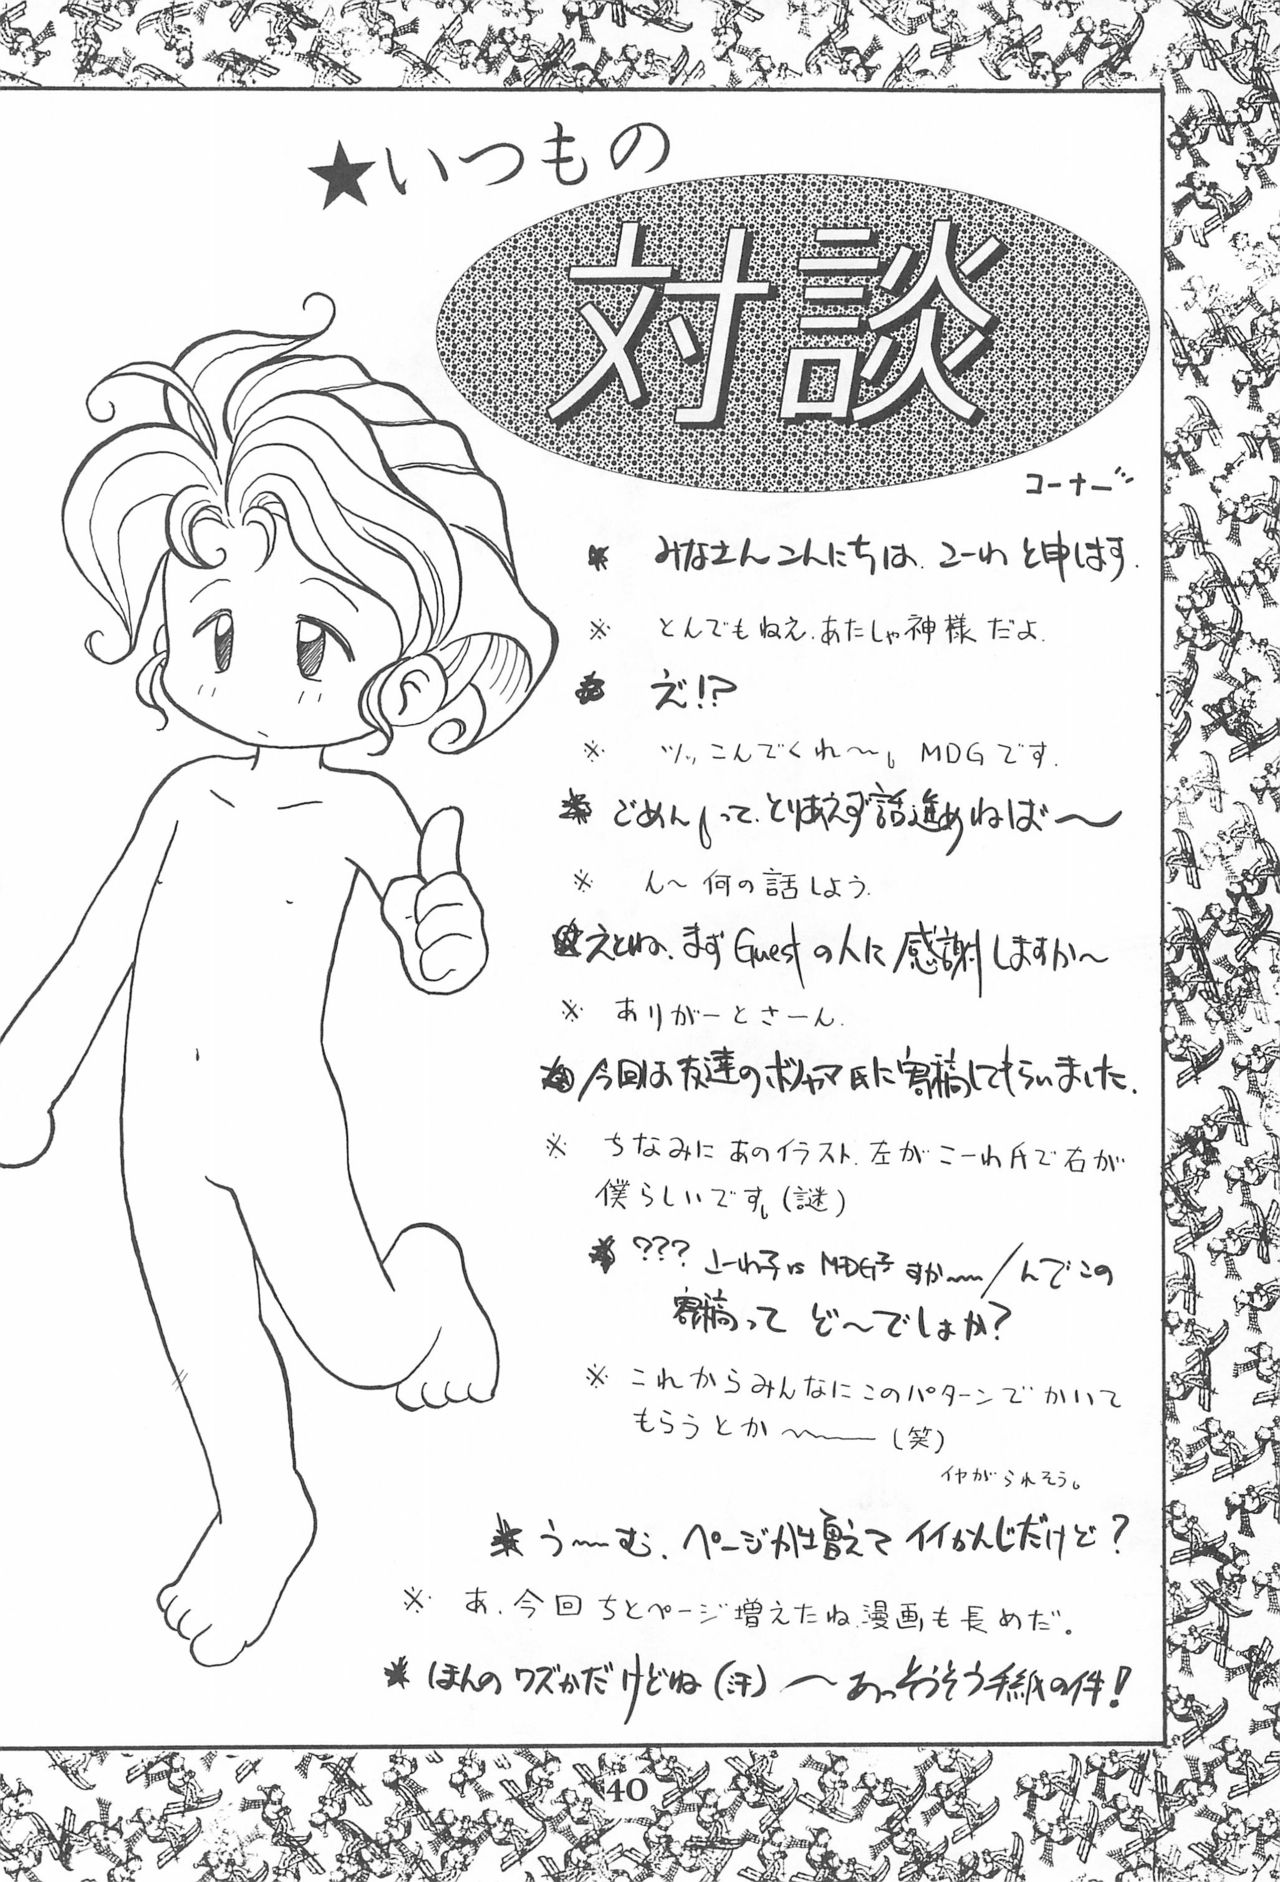 ★いつもの
対談
コーナー
★ みなさんこんにちは、こーわと申します.
※ とんでもねえ、あたしゃ神様だよ.
★ え!?
※ ツッこんでくれ〜。MDGです.
★ ごめん。って、とりあえず話進めねば〜
※ ん〜何の話しよう.
★ えとね、まずGuestの人に感謝しますか〜
※ ありがーとさーん.
★ 今回は友達のボリャマ氏に寄稿してもらいました.
※ ちなみにあのイラスト、左がこーわ氏で右が
僕らしいです。(謎)
★ ??? こーわ子vs MDG子すか〜〜/んでこの
寄稿ってど〜でしょか?
※ これからみんなにこのパターンでかいて
もらうとか〜〜ー(笑)
イヤがられそう。
★ う〜〜む、ページが増えてイイかんじだけど?
※ あ、今回ちとページ増えたね、漫画も長めだ。
★ ほんのワズかだけどね(汗)〜あっそうそう手紙の件!
40